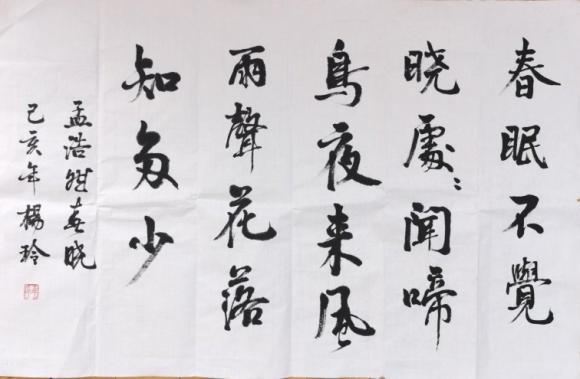 春眠不覺
晓處〻聞啼
鳥夜来風
雨聲花落
知多少
孟浩然春晓
己亥年楊玲